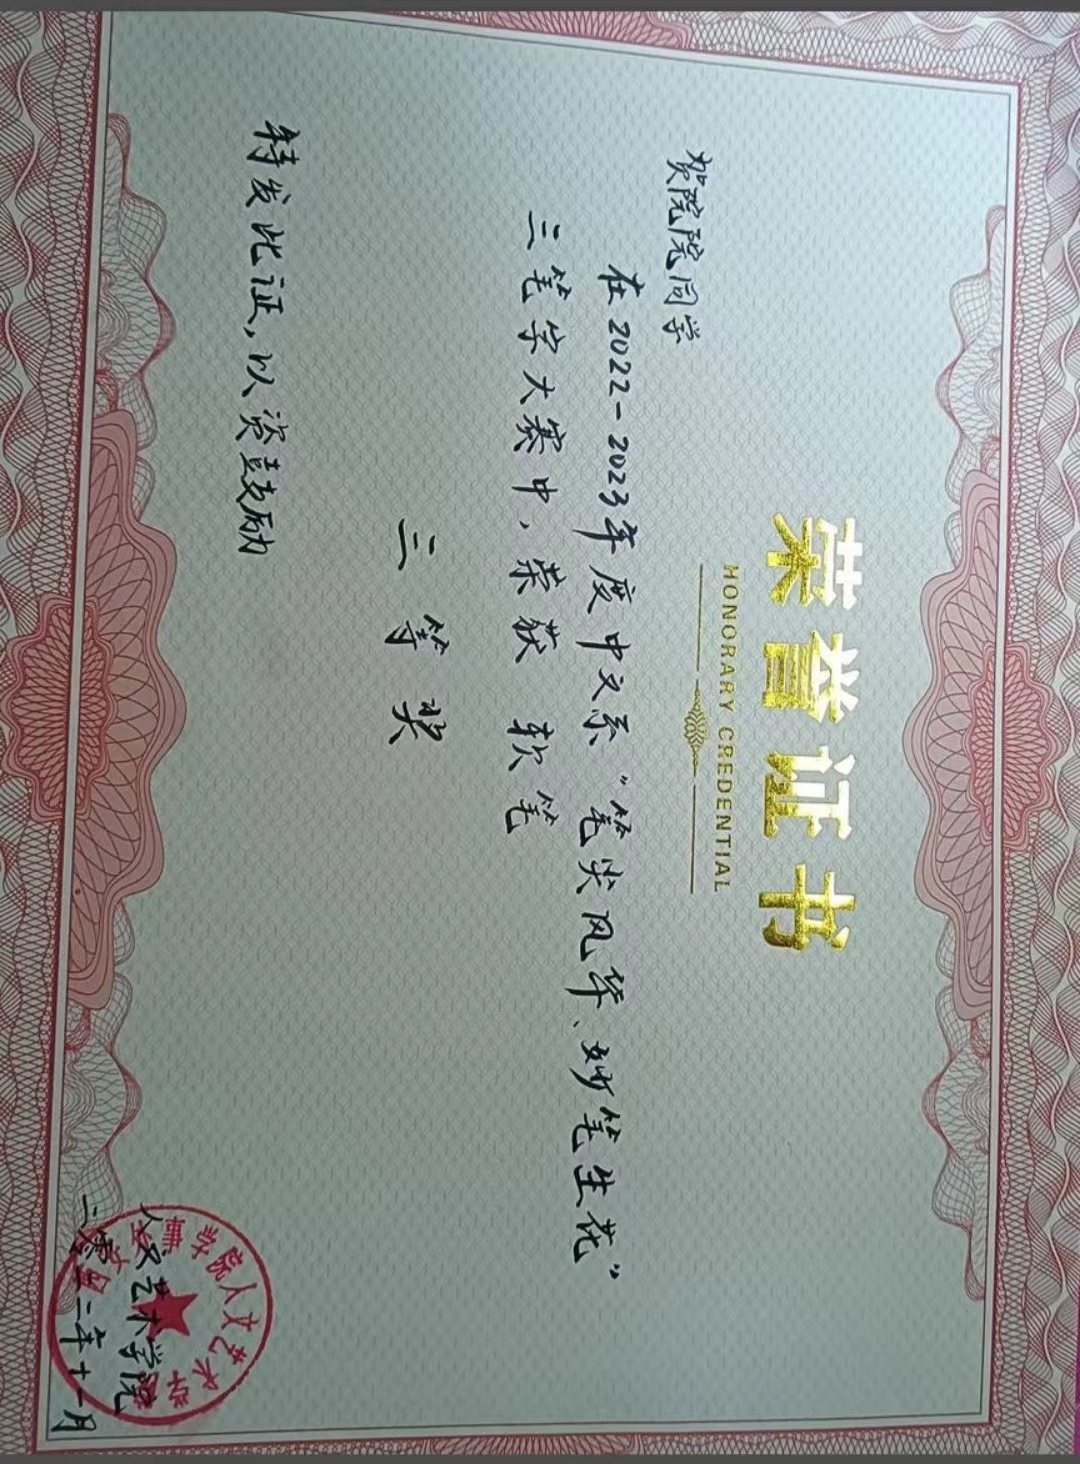 荣誉证书
HONORARY CREDENTIAL
贺院院同学
在2022-2023年度中文系“笔尖风华、妙笔生花”
三笔字大赛中，荣获 软笔
三等奖
特发此证，以资鼓励
人文艺术学院
二零二二年十一月